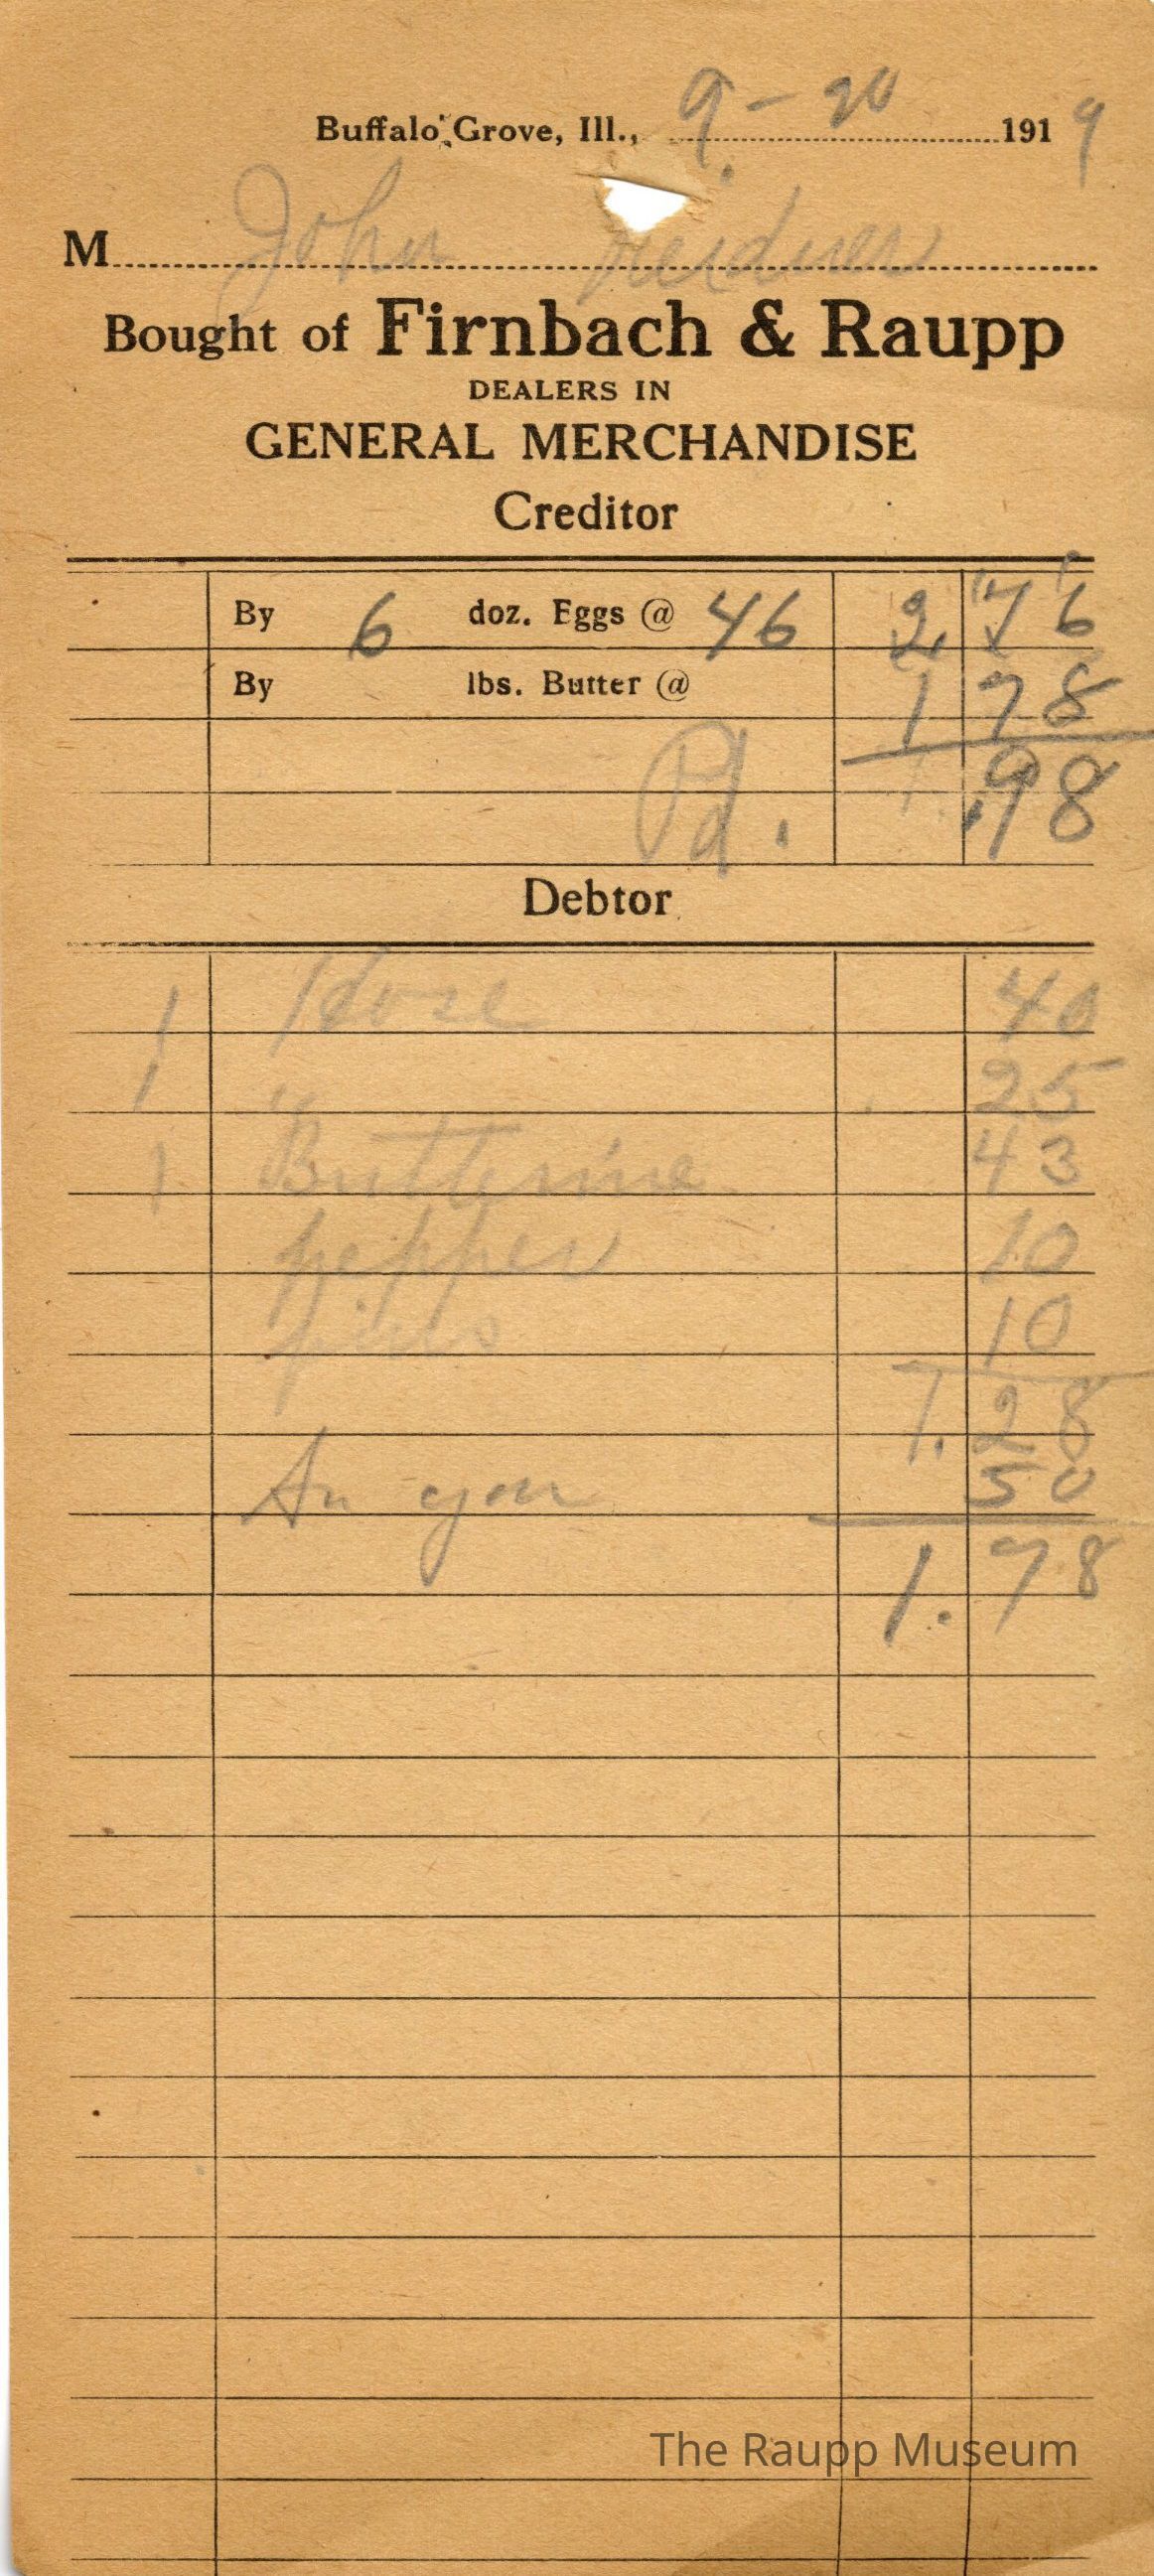 Buffalo Grove, Ill., 9-20 1919
M John Weidner
Bought of Firnbach & Raupp
DEALERS IN
GENERAL MERCHANDISE
Creditor
By 6 doz. Eggs @ 46 2 76
By lbs. Butter @ 1 78
Pd. .98
Debtor
1 Hose 40
1 " 25
1 Butterine 43
pepper 10
pins 10
1.28
50
1.78
The Raupp Museum